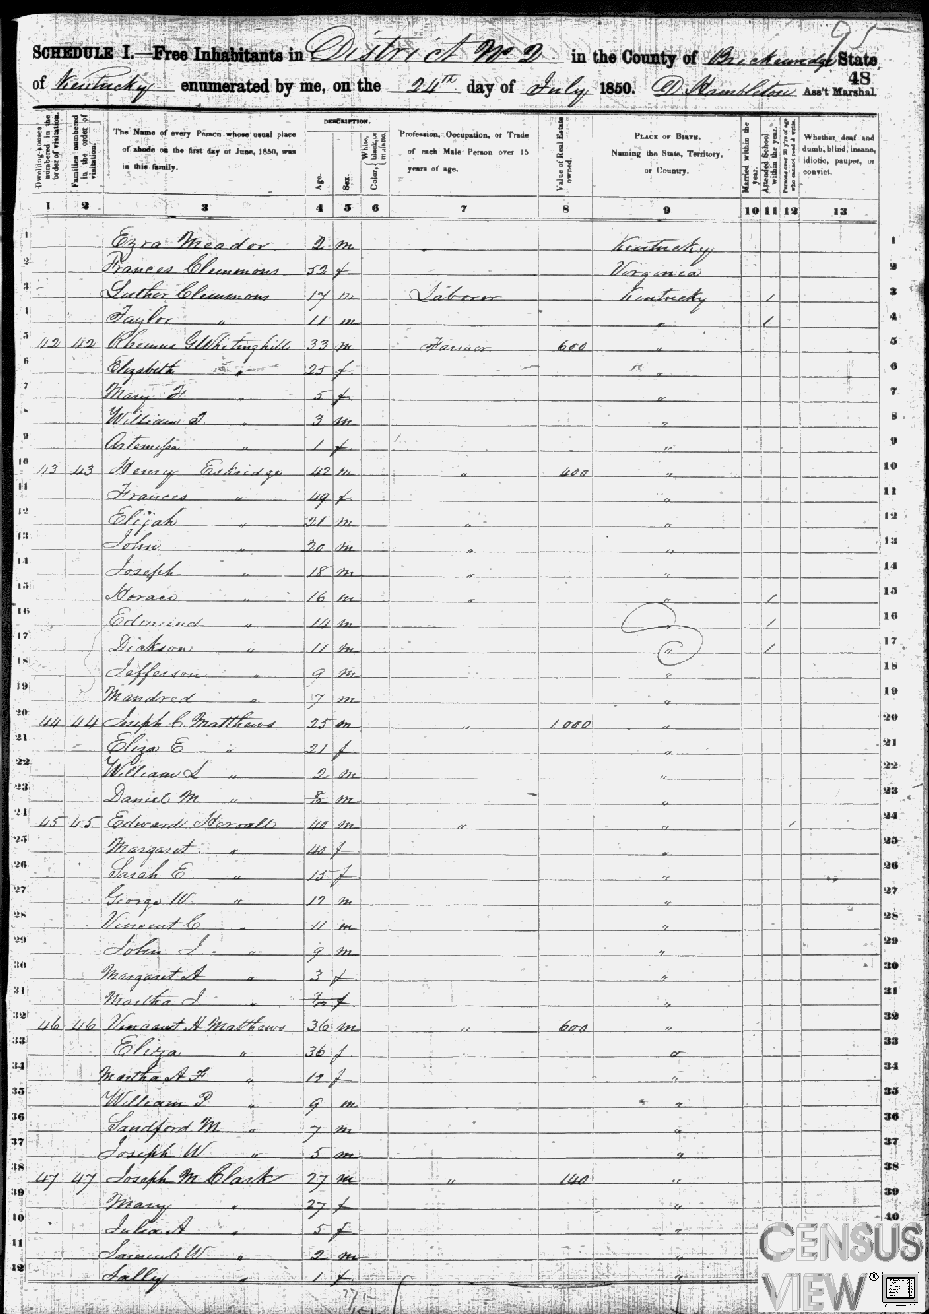 95
SCHEDULE I.—Free Inhabitants in District No 2 in the County of Breckenridge State
of Kentucky enumerated by me, on the 24th day of July 1850. D. Hambleton Ass't Marshal.
48
Dwelling-houses numbered in the order of visitation.
Families numbered in the order of visitation.
The Name of every Person whose usual place of abode on the first day of June, 1850, was in this family.
DESCRIPTION.
Age.
Sex.
Color, White, black, or mulatto.
Profession, Occupation, or Trade of each Male Person over 15 years of age.
Value of Real Estate owned.
PLACE OF BIRTH. Naming the State, Territory, or Country.
Married within the year.
Attended School within the year.
Persons over 20 y'rs of age who cannot read & write.
Whether deaf and dumb, blind, insane, idiotic, pauper, or convict.
1 2 3 4 5 6 7 8 9 10 11 12 13
1 Ezra Meador 2 m Kentucky 1
2 Frances Clemmons 52 f Virginia 2
3 Luther Clemmons 17 m Laborer Kentucky 1 3
4 Taylor " 11 m " 1 4
5 42 42 G Whitinghill 33 m Farmer 600 " 5
6 Elizabeth " 25 f " 6
7 Mary F " 5 f " 7
8 William " 3 m " 8
9 Artemissa " 1 f " 9
10 43 43 Henry Eskridge 42 m " 400 " 10
11 Frances " 49 f " 11
12 Elijah " 21 m " " 12
13 John " 20 m " " 13
14 Joseph " 18 m " " 14
15 Horace " 16 m " " 1 15
16 Edmund " 14 m 1 16
17 Dickson " 11 m " 1 17
18 Jefferson " 9 m " 18
19 Mandred " 7 m " 19
20 44 44 Joseph C. Matthews 25 m " 1000 " 20
21 Eliza E " 21 f " 21
22 William S " 2 m " 22
23 Daniel M " m " 23
24 45 45 Edward 40 m " " 1 24
25 Margaret " 40 f " 25
26 Sarah E " 15 f " 26
27 George W " 12 m " 27
28 Vincent C " 11 m " 28
29 John " 9 m " 29
30 Margaret A " 3 f " 30
31 Martha J " f " 31
32 46 46 Vincent H Matthews 36 m " 600 " 32
33 Eliza " 36 f " 33
34 Martha A F " 12 f " 34
35 William P " 9 m " 35
36 Sandford M " 7 m " 36
37 Joseph W " 5 m " 37
38 47 47 Joseph M Clark 27 m " 140 " 38
39 Mary " 27 f " 39
40 Julia A " 5 f " 40
41 Samuel W " 2 m " 41
42 Sally " 1 f "
CENSUS
VIEW®